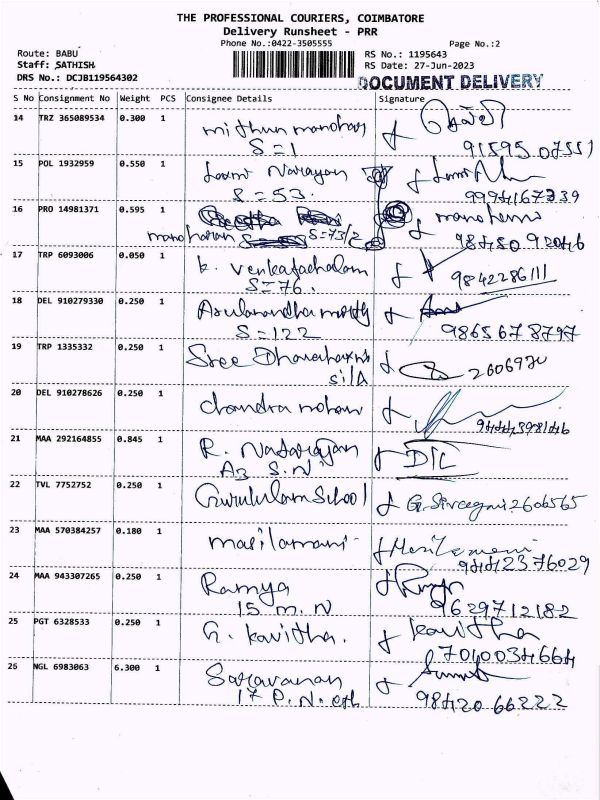 THE PROFESSIONAL COURIERS, COIMBATORE
Delivery Runsheet - PRR
Phone No.:0422-3505555 Page No.:2
Route: BABU RS No.: 1195643
Staff: SATHISH RS Date: 27-Jun-2023
DRS No.: DCJB119564302 DOCUMENT DELIVERY
S No Consignment No Weight PCS Consignee Details Signature
14 TRZ 365089534 0.300 1 Mithun manohar
S = 1 91595 07551
15 POL 1932959 0.550 1 Laxmi Narayan
S = 53. 9994167339
16 PRO 14981371 0.595 1
manoharan S=73/2 98480 92046
17 TRP 6093006 0.050 1 K. Venkatachalam
S=76. 9842286111
18 DEL 910279330 0.250 1
S = 122 9865678797
19 TRP 1335332 0.250 1 Sree
S11A 2606920
20 DEL 910278626 0.250 1 Chandra mohan
21 MAA 292164855 0.845 1 R. Natarajan
A3 S.N
22 TVL 7752752 0.250 1 Gurukulam School G. 2606565
23 MAA 570384257 0.180 1 masilamani Masilamani
9442376029
24 MAA 943307265 0.250 1 Ramya
15 M. N 9629712182
25 PGT 6328533 0.250 1 G. Kavitha. Kavitha
7010034664
26 NGL 6983063 6.300 1 Saravanan
17 P. N. 98420 66222